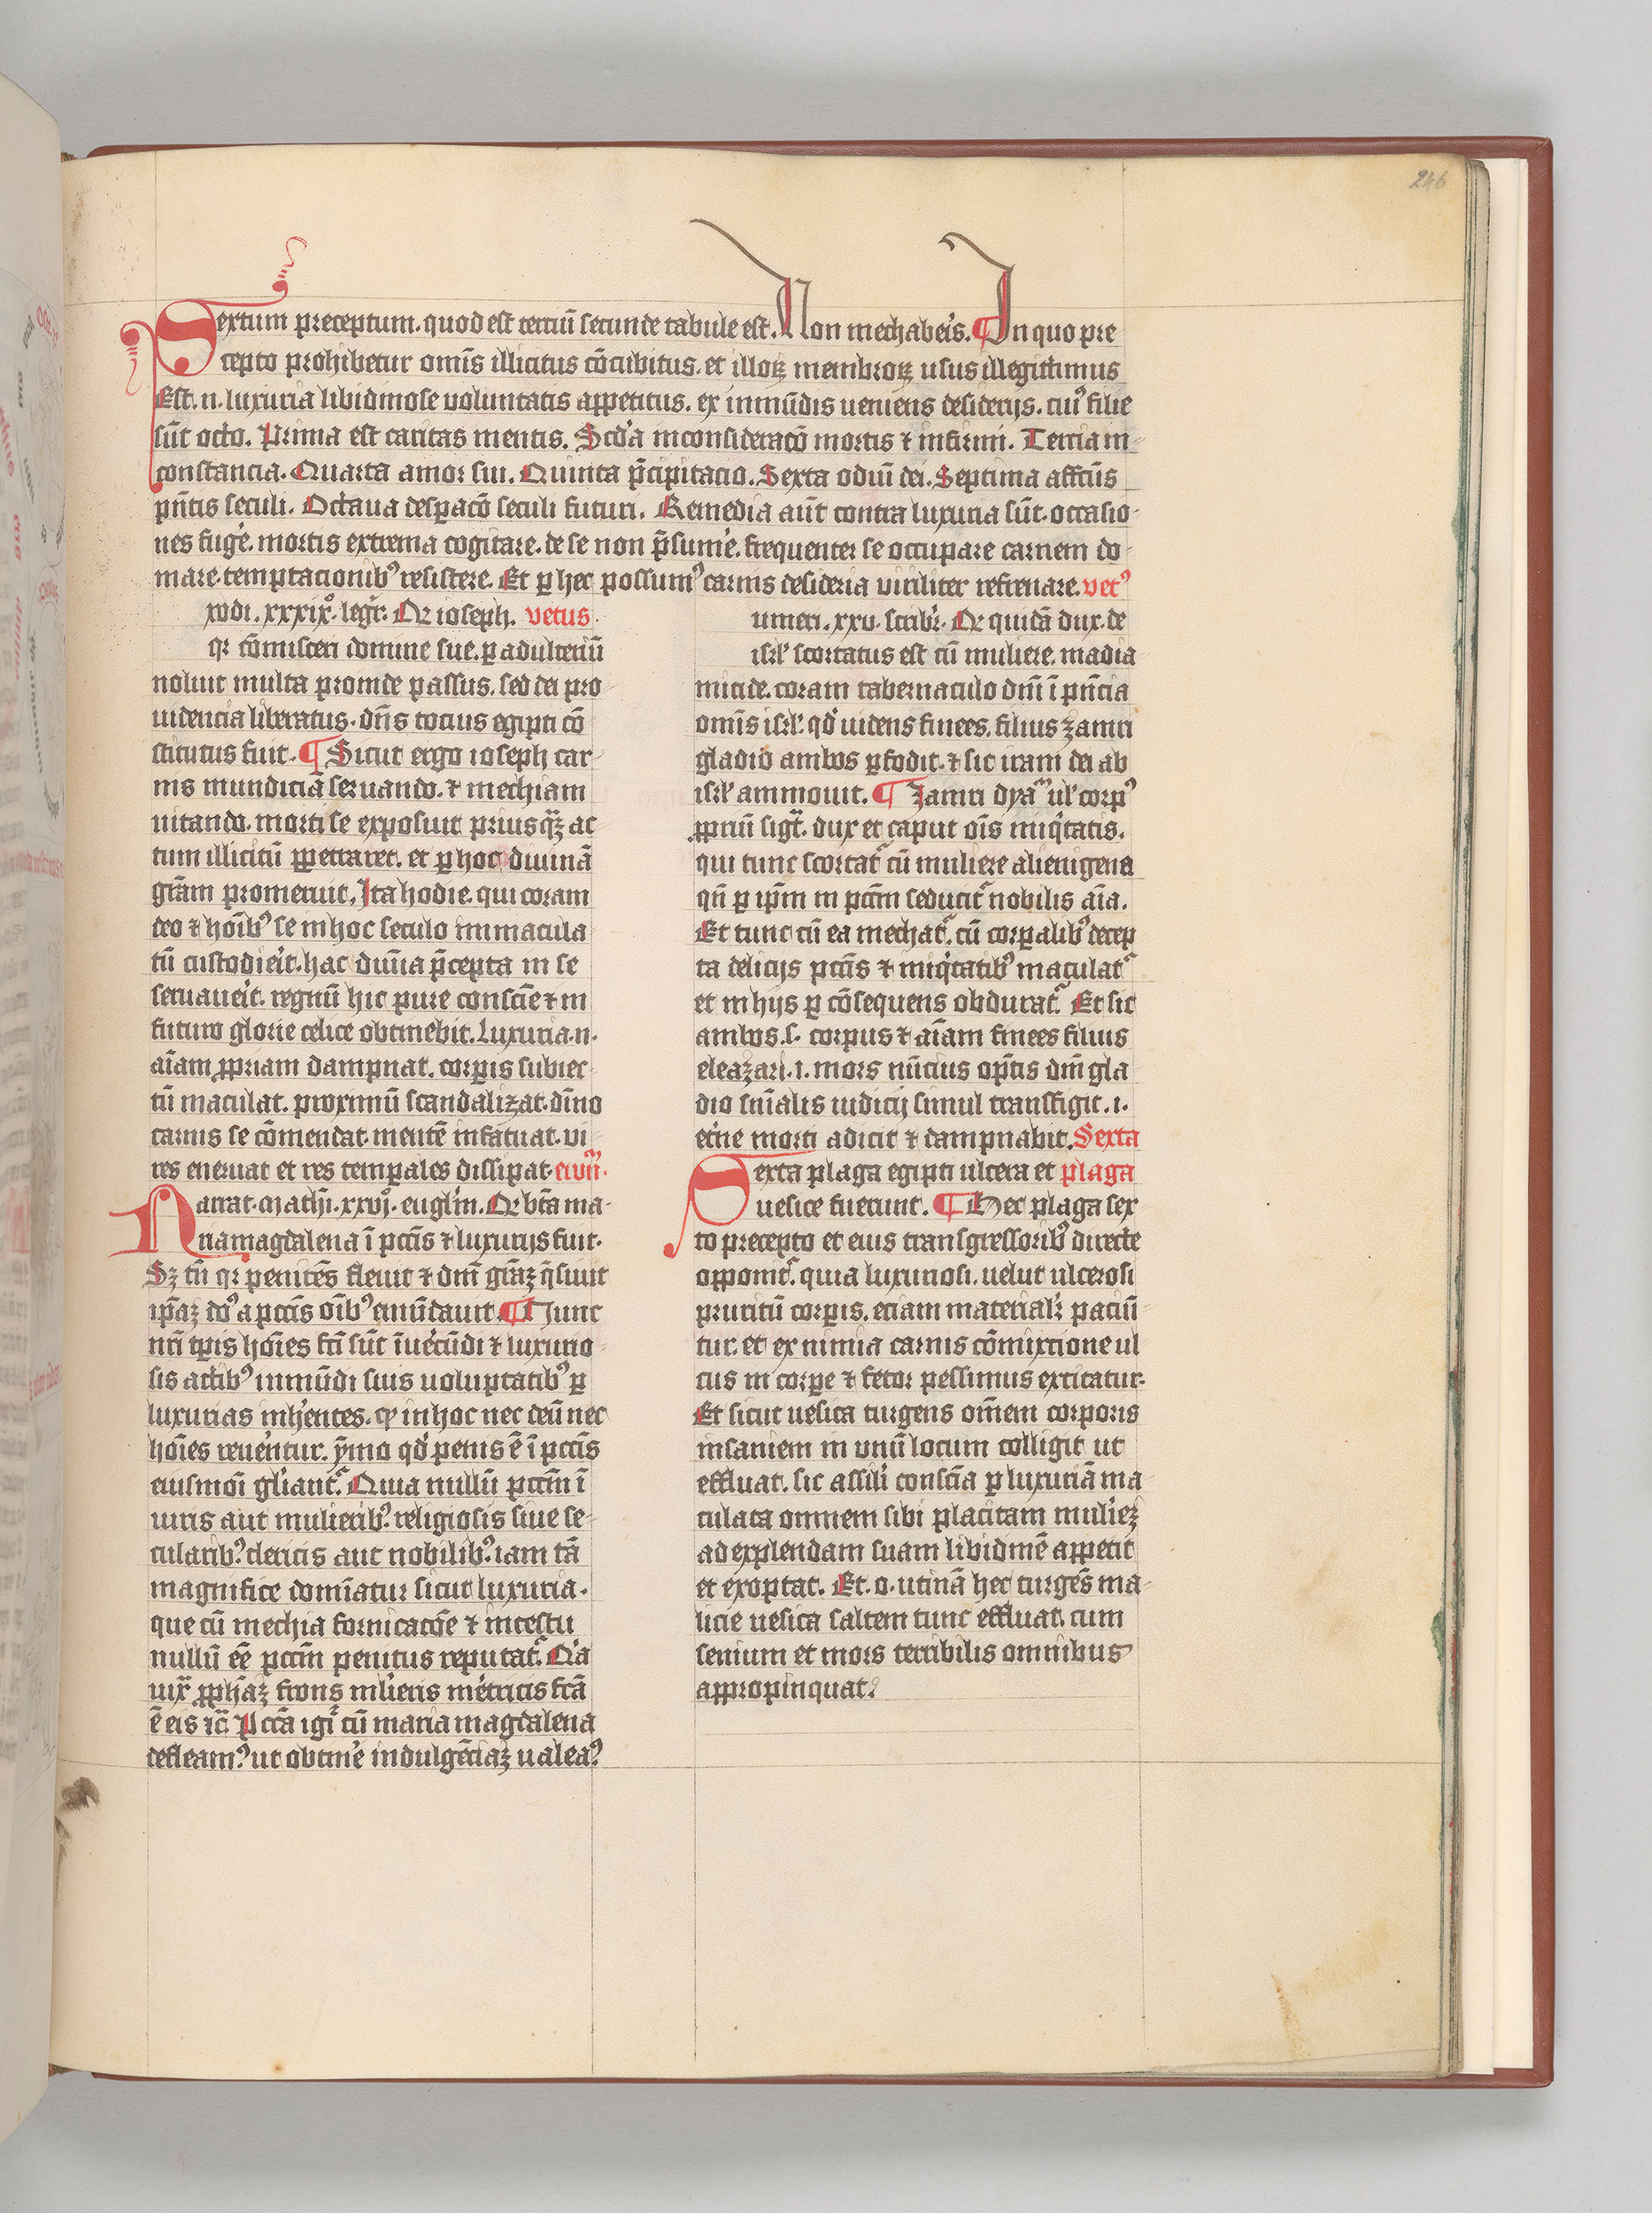 246
Sextum preceptum. quod est terciū secunde tabule est. Non mechaberis. ¶ In quo pre
cepto prohibetur omīs illicitus cōcubitus. et illoꝝ membroꝝ usus illegittimus
Est. n. luxuria libidinose voluntatis appetitus. ex inmūdis ueniens desiderijs. cuiꝰ filie
sūt octo. Prima est cecitas mentis. Scd'a inconsideracō mortis ⁊ inferni. Tercia in-
constancia. Quarta amor sui. Quinta p̄cipitacio. Sexta odiū dei. Septima affctūs
pn̄tis seculi. Octaua desꝑacō seculi futuri. Remedia aūt contra luxuria sūt. occasio-
nes fuge'. mortis extrema cogitare. de se non p̄sume'. frequenter se occupare carnem do-
mare. temptacionibꝰ resistere. Et ꝑ hec possumꝰ carnis desideria viriliter refrenare. vetꝰ
xodi. xxxixº. legr̄. Qr ioseph. vetus
qr cōmisceri domine sue. ꝑ adulteriū
noluit multa proinde passus. sed dei pro-
uidencia liberatus. dn̄s tocius egipti cō-
stitutus fuit. ¶ Sicut ergo ioseph car-
nis mundiciā seruando. ⁊ mechiam
uitando. morti se exposuit priusqꝫ ac-
tum illicitū ꝑpetraret. et ꝑ hoc diuinā
grām promeruit. Ita hodie. qui coram
deo ⁊ hoībꝰ se in hoc seculo inmacula-
tū custodie'it. hac diuīa p̄cepta in se
seruaue'it. regnū hic pure conscīe ⁊ in
futuro glorie celice obtinebit. Luxuria. n.
aīam ꝓpriam dampnat. corꝑis subiec-
tū maculat. proximū scandalizat. dīno
carnis se cōmendat. mentē infatuat. vi-
res eneruat et res temꝑales dissipat. ewn.
Narrat. Mathi. xxvjº. euglīm. Qr btā ma-
ria magdalena ī pccīs ⁊ luxurijs fuit.
Sꝫ tn̄ qr penitēs fleuit ⁊ dnī grāꝫ q̄siuit
ip̄aꝫ dꝰ a pccīs oībꝰ emūdauit ¶ Nunc
nrī tꝑis hoīes fcī sūt īue'cūdi ⁊ luxurio-
sis actibꝰ inmūdi suis uoluptatibꝰ ꝑ
luxurias inh'entes. ꝙ in hoc nec deū nec
hoīes reue'ntur. ymo qd' penis ē ī pccīs
eiusmoī gl'iant᷑. Quia nullū pccīm ī
uiris aut mulieribꝰ. religiosis siue se-
cularibꝰ. clericis aut nobilibꝰ. iam tā
magnifice domīatur sicut luxuria.
que cū mechia fornicacōe ⁊ incestu
nullū eē pccīm penitus reputat᷑. Qr'a
ꝓphāꝫ frons ml'ieris me'tricis fcā
ē eis ⁊c̄ Pccā igr̄ cū maria magdalena
defleamꝰ. ut obtine' indulgēciaꝫ ualeaꝰ
umeri. xxv. scribr̄. Qr quidā dux. de
isrl' scortatus est cū muliere. madia-
nitide. coram tabernaculo dnī ī pn̄cia
omīs isrl'. qd' uidens finees. filius zamri
gladio ambos ꝑfodit. ⁊ sic iram dei ab
isrl' ammouit. ¶ Zamri dyaᵐ ul' corpꝰ
ꝓpriū sigt̄. dux et caput oīs iniq'tatis.
qui tunc scortat᷑ cū muliere alienigena
qn̄ ꝑ ip̄m in pccīm seducit᷑ nobilis aīa.
Et tunc cū ea mechat᷑. cū corꝑalibꝰ decep-
ta delicijs pccīs ⁊ iniq'tatibꝰ maculat᷑
et in hijs ꝑ cōsequens obdurat᷑. Et sic
ambos. s. corpus ⁊ aīam finees filius
eleazari. i. mors nūcius opītis dnī gla-
dio fnīalis iudicij simul transfigit. i.
et'ne morti adicit ⁊ dampnabit. Sexta
Sexta plaga egipti ulcera et plaga
uesice fuerunt. ¶ Hec plaga sex-
to precepto et eius transgressoribꝰ directe
opponit᷑. quia luxuriosi. uelut ulcerosi
pruritū corꝑis. eciam materialr̄ paciū-
tur. et ex nimia carnis cōmixtione ul-
cus in corꝑe ⁊ fetor pessimus excitatur.
Et sicut uesica turgens omēm corporis
insaniem in unū locum colligit ut
effluat. sic assili' conscīa ꝑ luxuriā ma-
culata omnem sibi placitam mulie'ꝫ
ad explendam suam libidinē appetit
et exoptat. Et. o. utinā hec turgēs ma-
licie uesica saltem tunc effluat. cum
senium et mors terribilis omnibus
appropinquat.